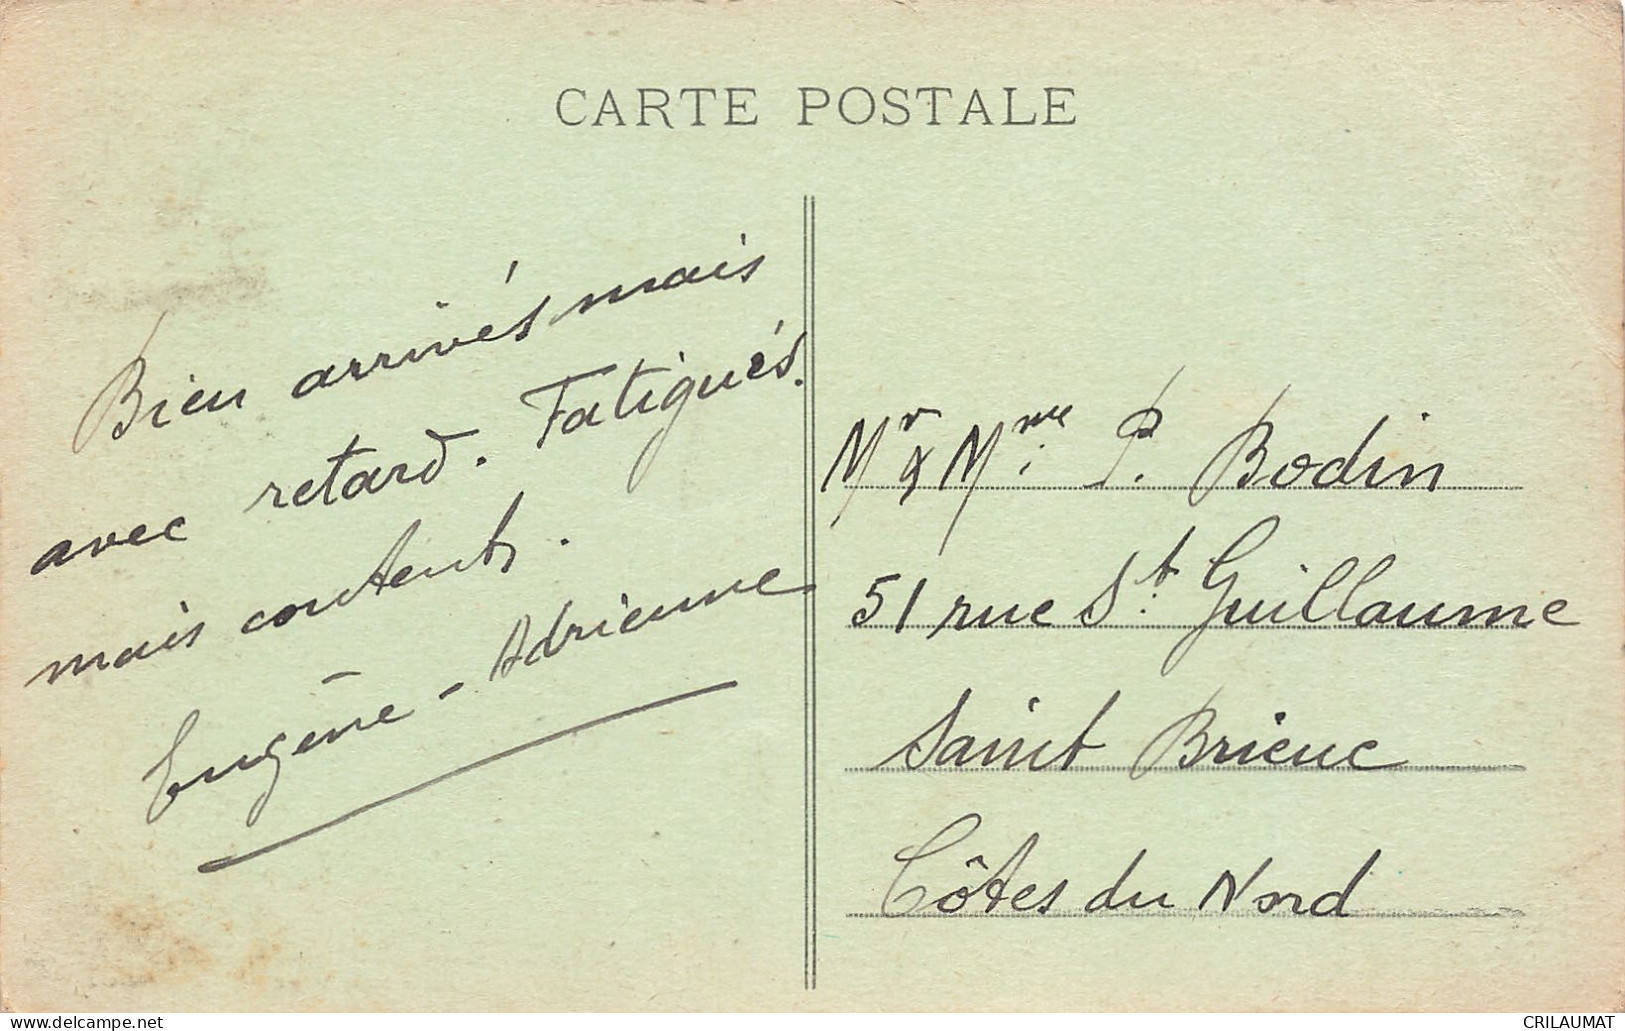 CARTE POSTALE
Bien arrivés mais
avec retard. Fatigués.
mais contents.
Eugène - Adrienne
Mr & Mme P. Bodin
51 rue St. Guillaume
Saint Brieuc
Côtes du Nord
www.delcampe.net
CRILAUMAT